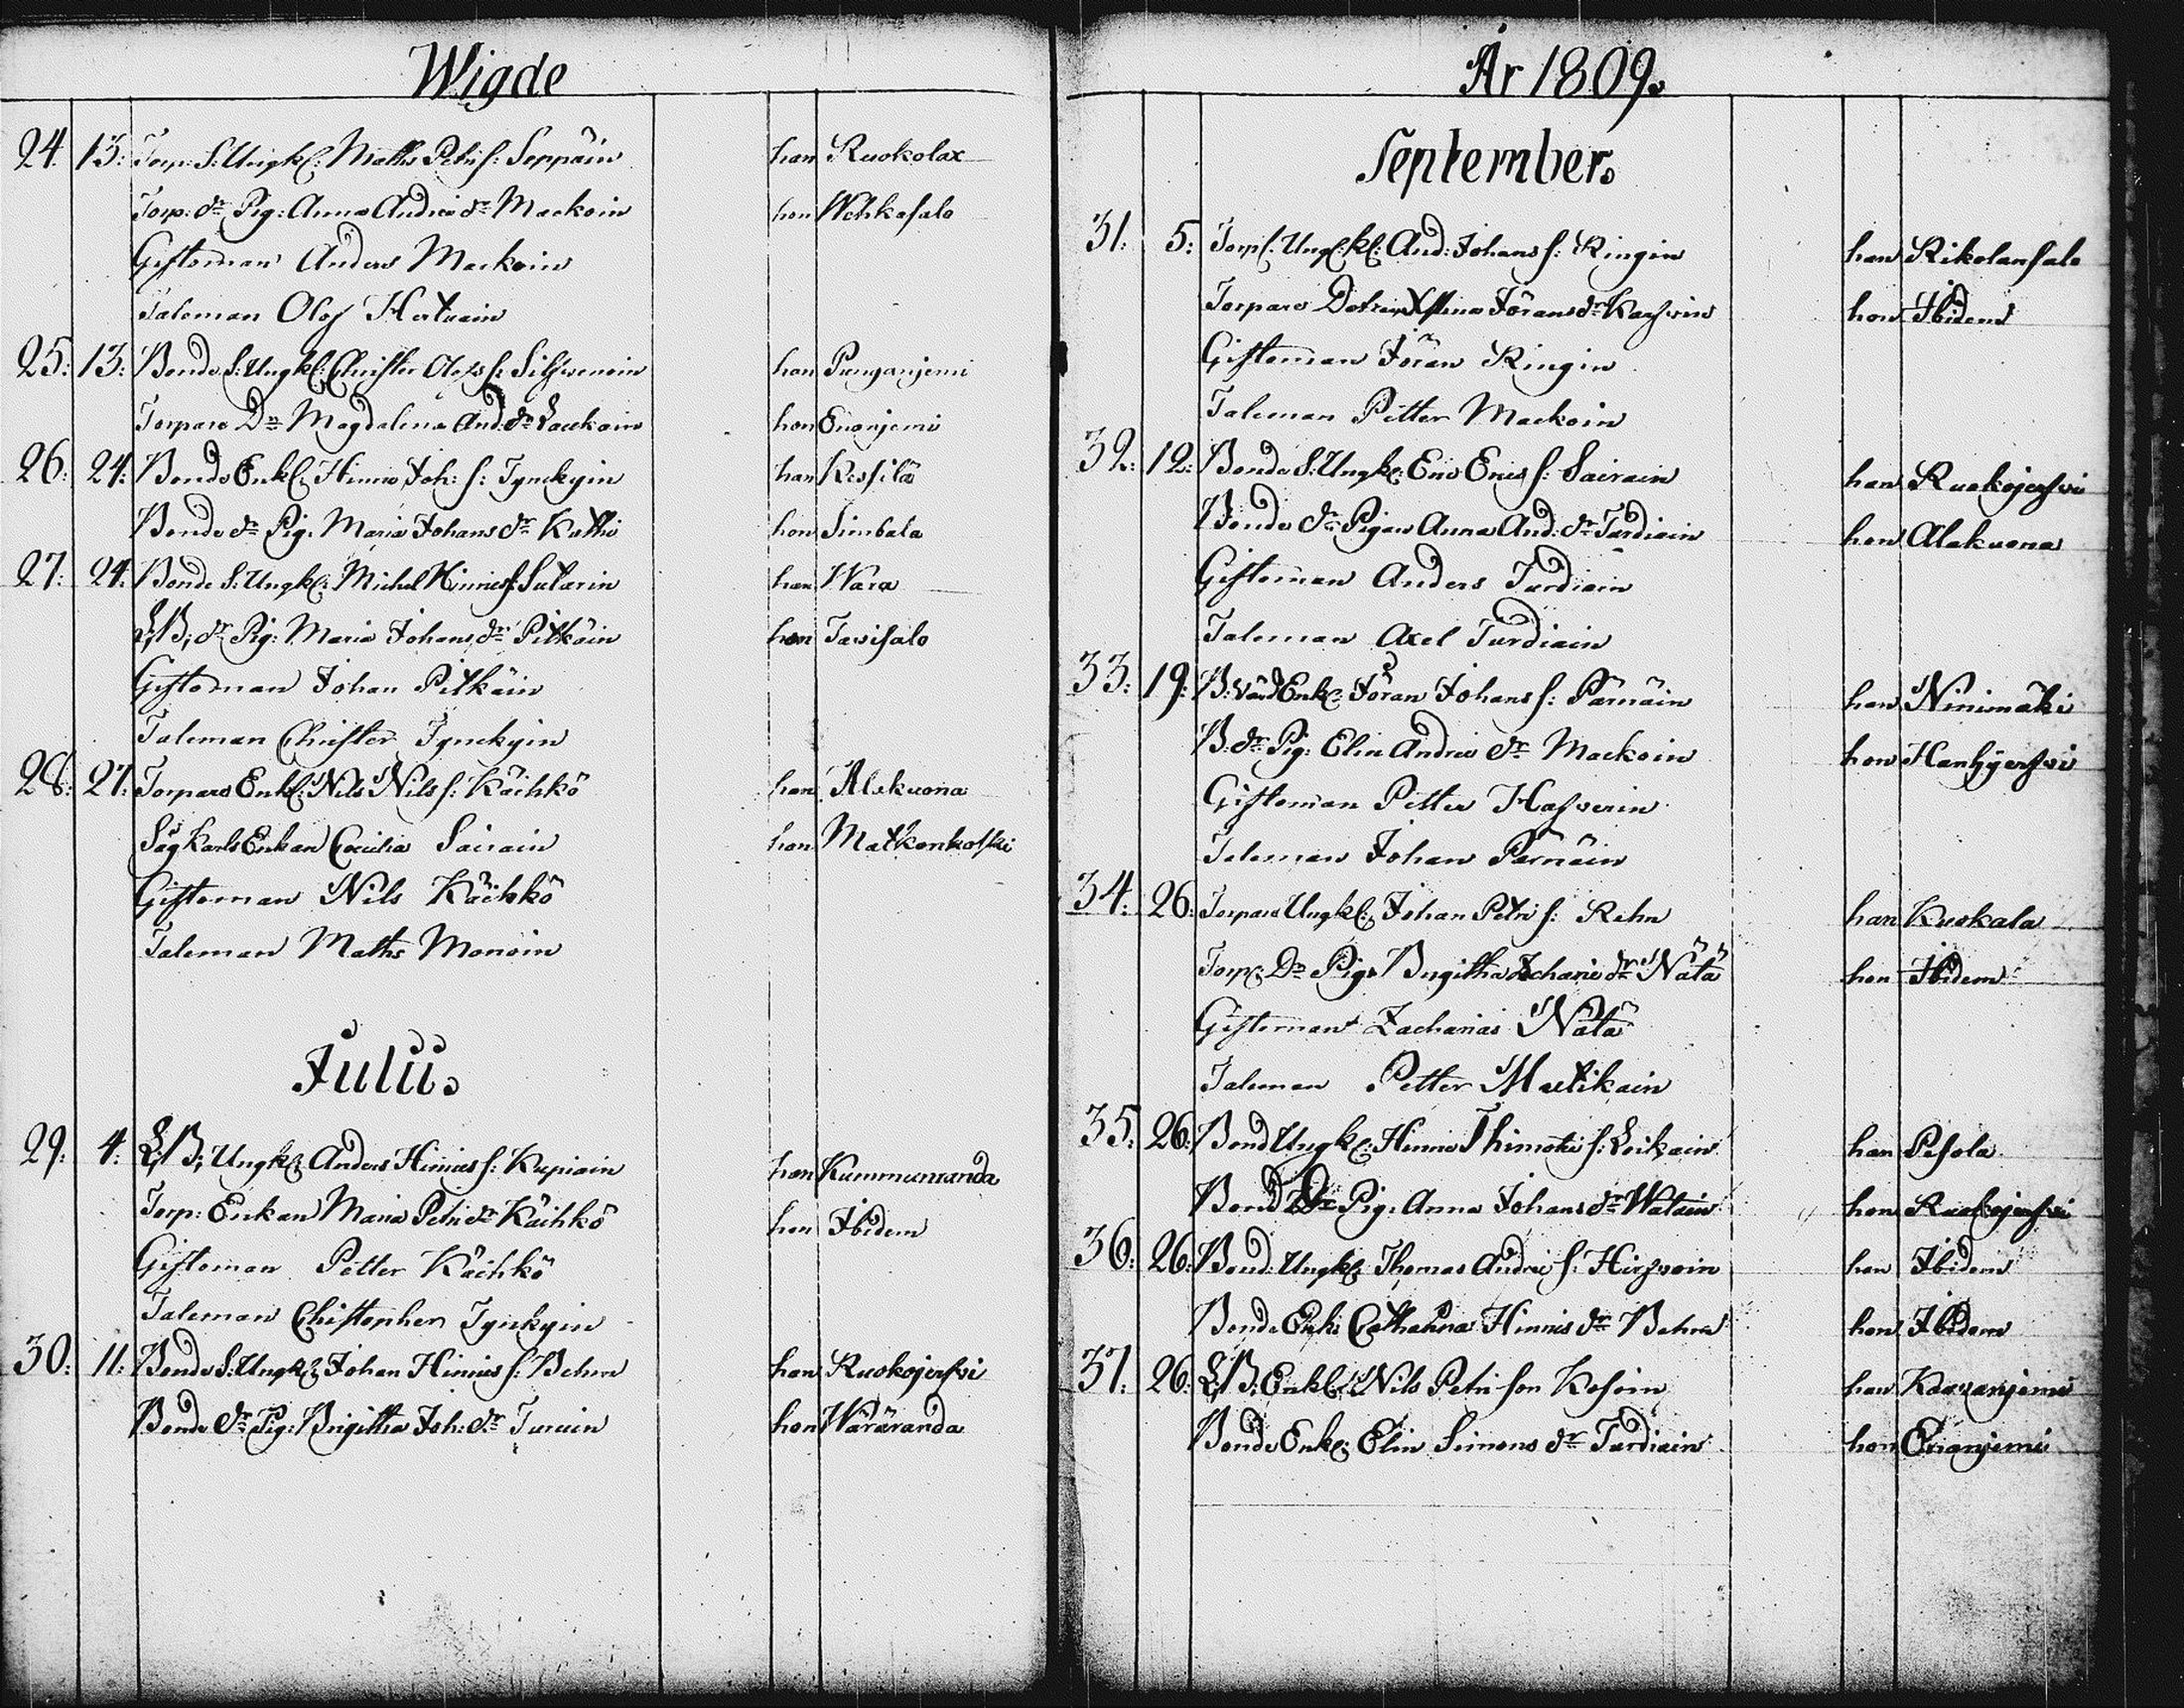 Wigde
24. 13: Torp: S: Ungk: Maths Petri s: Seppäin han Ruokolax
Torp: dr Pig: Anna Andrea dr Mackoin hon Wehkasalo
Giftoman Anders Mackoin
Taleman Olof
25: 13: Bonde S: Ungk: Christer Olofs s: Silfwenoin han Punganjemi
Torpare Dr Magdalena And: dr Lauckain hon Enanjemi
26: 24: Bonde Enkl: Hinric Joh: s: Tynckyin han Ressilä
Bonde dr Pig: Maria Johans dr hon Simbala
27: 24: Bonde S: Ungk: Michel Hinrics s: Sutarin han Wara
L: B: dr Pig: Maria Johans dr Pitkäin hon Tavisalo
Giftoman Johan Pitkäin
Taleman Christer Tynckyin
28: 27: Torpare Enkl: Nils Nils s: Käihkö han Alakuona
Såg Karls Enkan Cecilia Sairain hon Matkonkoski
Giftoman Nils Käihkö
Taleman Maths Monoin
Julii.
29: 4: L: B: Ungk: Anders Hinrics s: Kupiain han Kummunranda
Torp: Enkan Maria Petri dr Käihkö hon Ibidem
Giftoman Petter Käihkö
Taleman Christopher Tynckyin
30: 11: Bonde S: Ungk: Johan Hinrics s: Behm han Ruokojerfvi
Bonde dr Pig: Brigitha Joh: dr Turuin hon Wäräranda
År 1809.
September.
31: 5: Torp s: Ungk: And: Johans s: Ringin han Rikolansalo
Torpare Dotren Stina Jörans dr Karfvin hon Ibidem
Giftoman Jöran Ringin
Taleman Petter Mackoin
32: 12: Bonde S: Ungk: Eric Erics s: Sairain han Ruokojerfvi
Bonde dr Pigan Anna And: dr Turdiain hon Alakuona
Giftoman Anders Turdiain
Taleman Axel Turdiain
33: 19: B: Enk: Jöran Johans s: Pärnäin han Ninimäki
B: dr Pig: Elin Andrea dr Mackoin hon Hanhijerfvi
Giftoman Petter Hafverin
Taleman Johan Pärnäin
34: 26: Torpare Ungk: Johan Petri s: Rehn han Kuokala
Torp: Dr Pig: Brigitha Zacharie dr Nätä hon Ibidem
Giftoman Zacharias Nätä
Taleman Petter Mustikain
35: 26: Bond Ungk: Hinric Thimotei s: Loikain han Pesola
Bond Dr Pig: Anna Johans dr Watain hon Ruokojerfvi
36: 26: Bond: Ungk: Thomas Andrea s: Hirfvoin han Ibidem
Bonde Enk: Catharina Hinrics dr Behm hon Ibidem
37: 26: L: B: Enkl: Nils Petri son Kosoin han
Bonde Enk: Elin Simons dr Turdiain hon Enanjemi